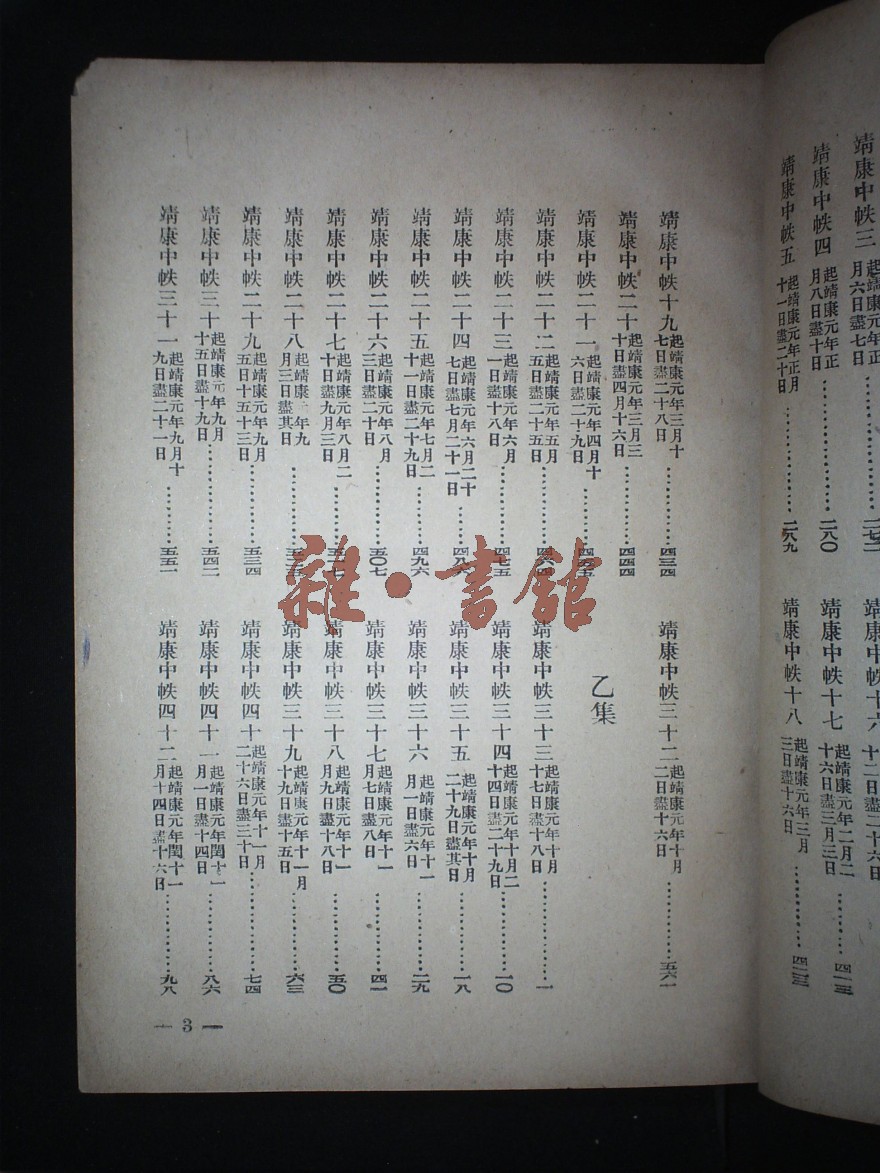 靖康中帙三 起靖康元年正月六日盡七日
靖康中帙四 起靖康元年正月八日盡十日……二八〇
靖康中帙五 起靖康元年正月十一日盡二十日……二八九
靖康中帙十六
靖康中帙十七 起靖康元年二月二十六日盡三月三日……四一三
靖康中帙十八 起靖康元年三月三日盡十六日……四二三
靖康中帙十九 起靖康元年三月十七日盡二十八日……四三四
靖康中帙二十 起靖康元年三月三十日盡四月十六日……四四四
靖康中帙二十一 起靖康元年四月十六日盡二十九日……四五五
靖康中帙二十二 起靖康元年五月五日盡二十五日……四六四
靖康中帙二十三 起靖康元年六月一日盡十八日……四七五
靖康中帙二十四 起靖康元年六月二十七日盡七月二十一日……四八六
靖康中帙二十五 起靖康元年七月二十一日盡二十九日……四九六
靖康中帙二十六 起靖康元年八月三日盡二十日……五〇七
靖康中帙二十七 起靖康元年八月二十日盡九月三日……五一七
靖康中帙二十八 起靖康 年九月三日盡其日
靖康中帙二十九 起靖康元年九月五日十五十三日……五三四
靖康中帙三十 起靖康元年九月十五日盡十九日……五四二
靖康中帙三十一 起靖康元年九月十九日盡二十一日……五五一
靖康中帙三十二 起靖康元年十月二日盡十六日……五六一
乙集
靖康中帙三十三 起靖康元年十月十七日盡十八日……一
靖康中帙三十四 起靖康元年十月二十四日盡二十九日……一〇
靖康中帙三十五 起靖康元年十月二十九日盡其日……一八
靖康中帙三十六 起靖康元年十一月一日盡六日……二九
靖康中帙三十七 起靖康元年十一月七日盡八日……四一
靖康中帙三十八 起靖康元年十一月九日盡十八日……五〇
靖康中帙三十九 起靖康元年十一月十九日盡十五日……六三
靖康中帙四十 起靖康元年十一月二十六日盡三十日……七四
靖康中帙四十一 起靖康元年閏十一月一日盡十四日……八六
靖康中帙四十二 起靖康元年閏十一月十四日盡十六日……九八
— 3 —
雜·書館